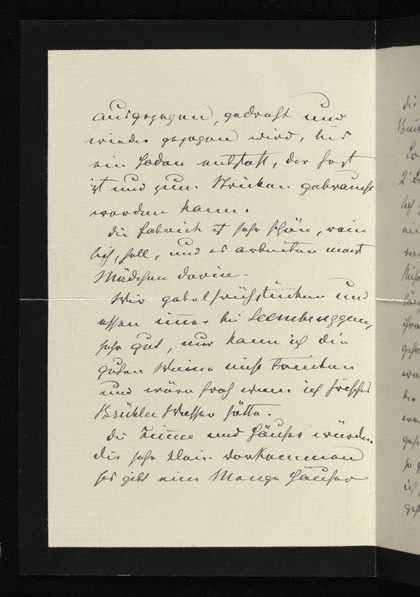 ausgezogen, gedreht und
wieder gezogen wird, bis
ein Faden entsteht, der fest
ist und zum Stricken gebraucht
werden kann.
Die Fabrick ist sehr schön, rein
lich, hell, und es arbeiten meist
Mädchen darin.
Wir gabelfrühstücken und
essen immer bei
sehr gut, nur kann ich die
guten Weine nicht trinken
und wäre froh wenn ich frisches
Brühler Wasser hätte.
Die Zimmer und Häuser würden
dir sehr klein vorkommen
es gibt eine Menge Häuser